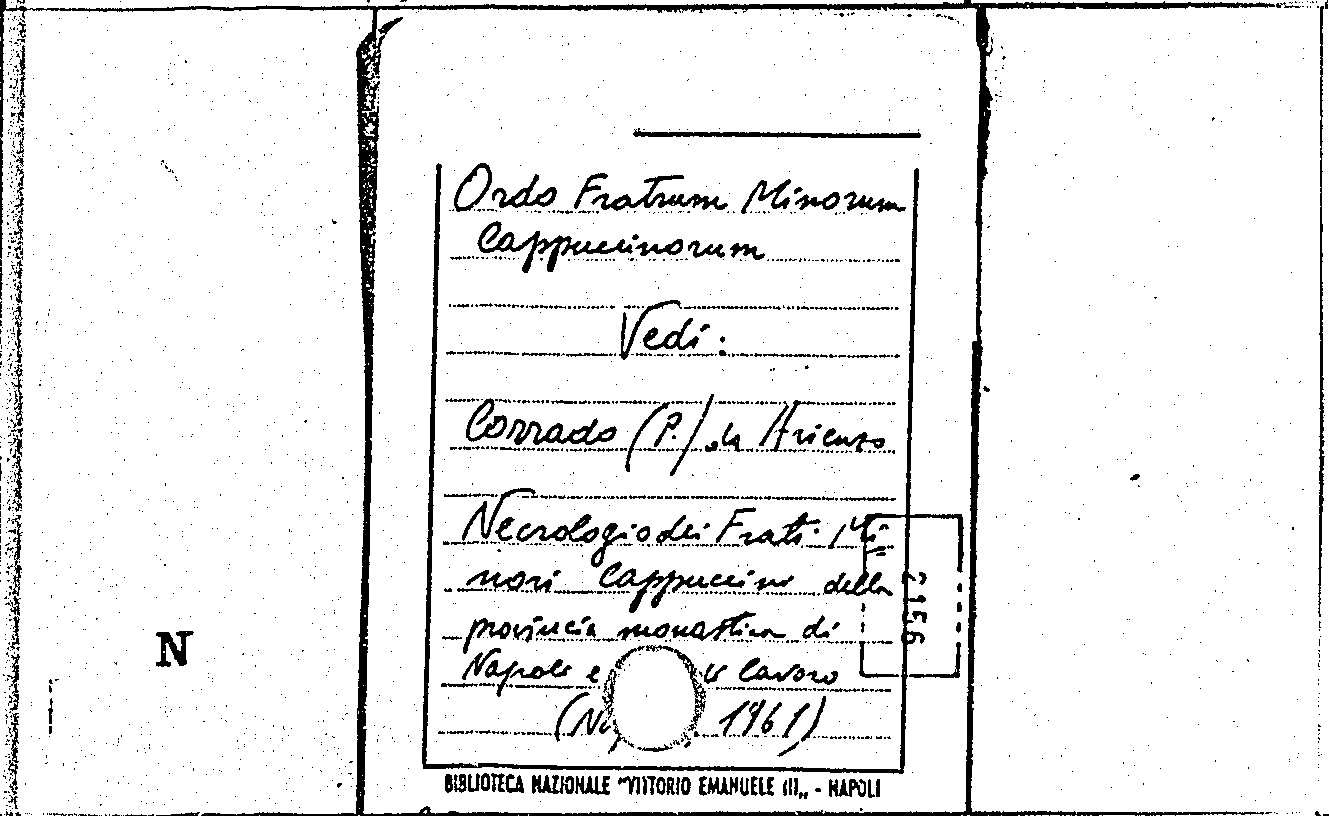 Ordo Fratrum Minorum
Cappuccinorum
Vedi:
Corrado (P.) da Arienzo
Necrologio dei Frati Mi=
nori Cappuccini della
provincia monastica di
Napoli e lavoro
( 1961)
2156
N
BIBLIOTECA NAZIONALE "VITTORIO EMANUELE III„ - NAPOLI